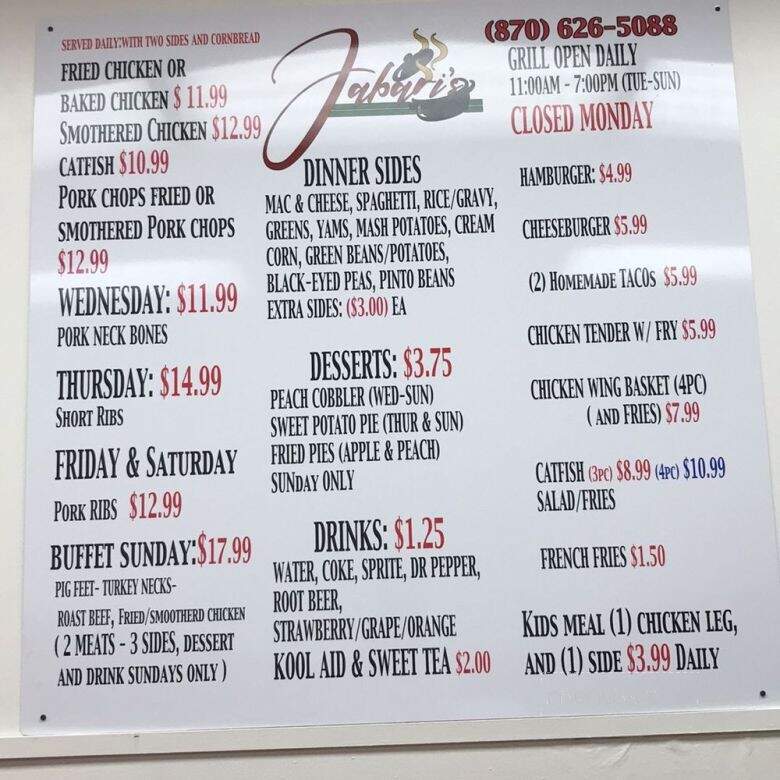 SERVED DAILY:WITH TWO SIDES AND CORNBREAD
FRIED CHICKEN OR
BAKED CHICKEN $ 11.99
SMOTHERED CHICKEN $12.99
CATFISH $10.99
PORK CHOPS FRIED OR
SMOTHERED PORK CHOPS
$12.99
WEDNESDAY: $11.99
PORK NECK BONES
THURSDAY: $14.99
SHORT RIBS
FRIDAY & SATURDAY
PORK RIBS $12.99
BUFFET SUNDAY:$17.99
PIG FEET- TURKEY NECKS-
ROAST BEEF, FRIED/SMOOTHERD CHICKEN
( 2 MEATS - 3 SIDES, DESSERT
AND DRINK SUNDAYS ONLY )
Jabari's
DINNER SIDES
MAC & CHEESE, SPAGHETTI, RICE/GRAVY,
GREENS, YAMS, MASH POTATOES, CREAM
CORN, GREEN BEANS/POTATOES,
BLACK-EYED PEAS, PINTO BEANS
EXTRA SIDES: ($3.00) EA
DESSERTS: $3.75
PEACH COBBLER (WED-SUN)
SWEET POTATO PIE (THUR & SUN)
FRIED PIES (APPLE & PEACH)
SUNDAY ONLY
DRINKS: $1.25
WATER, COKE, SPRITE, DR PEPPER,
ROOT BEER,
STRAWBERRY/GRAPE/ORANGE
KOOL AID & SWEET TEA $2.00
(870) 626-5088
GRILL OPEN DAILY
11:00AM - 7:00PM (TUE-SUN)
CLOSED MONDAY
HAMBURGER: $4.99
CHEESEBURGER $5.99
(2) HOMEMADE TACOS $5.99
CHICKEN TENDER W/ FRY $5.99
CHICKEN WING BASKET (4PC)
( AND FRIES) $7.99
CATFISH (3PC) $8.99 (4PC) $10.99
SALAD/FRIES
FRENCH FRIES $1.50
KIDS MEAL (1) CHICKEN LEG,
AND (1) SIDE $3.99 DAILY